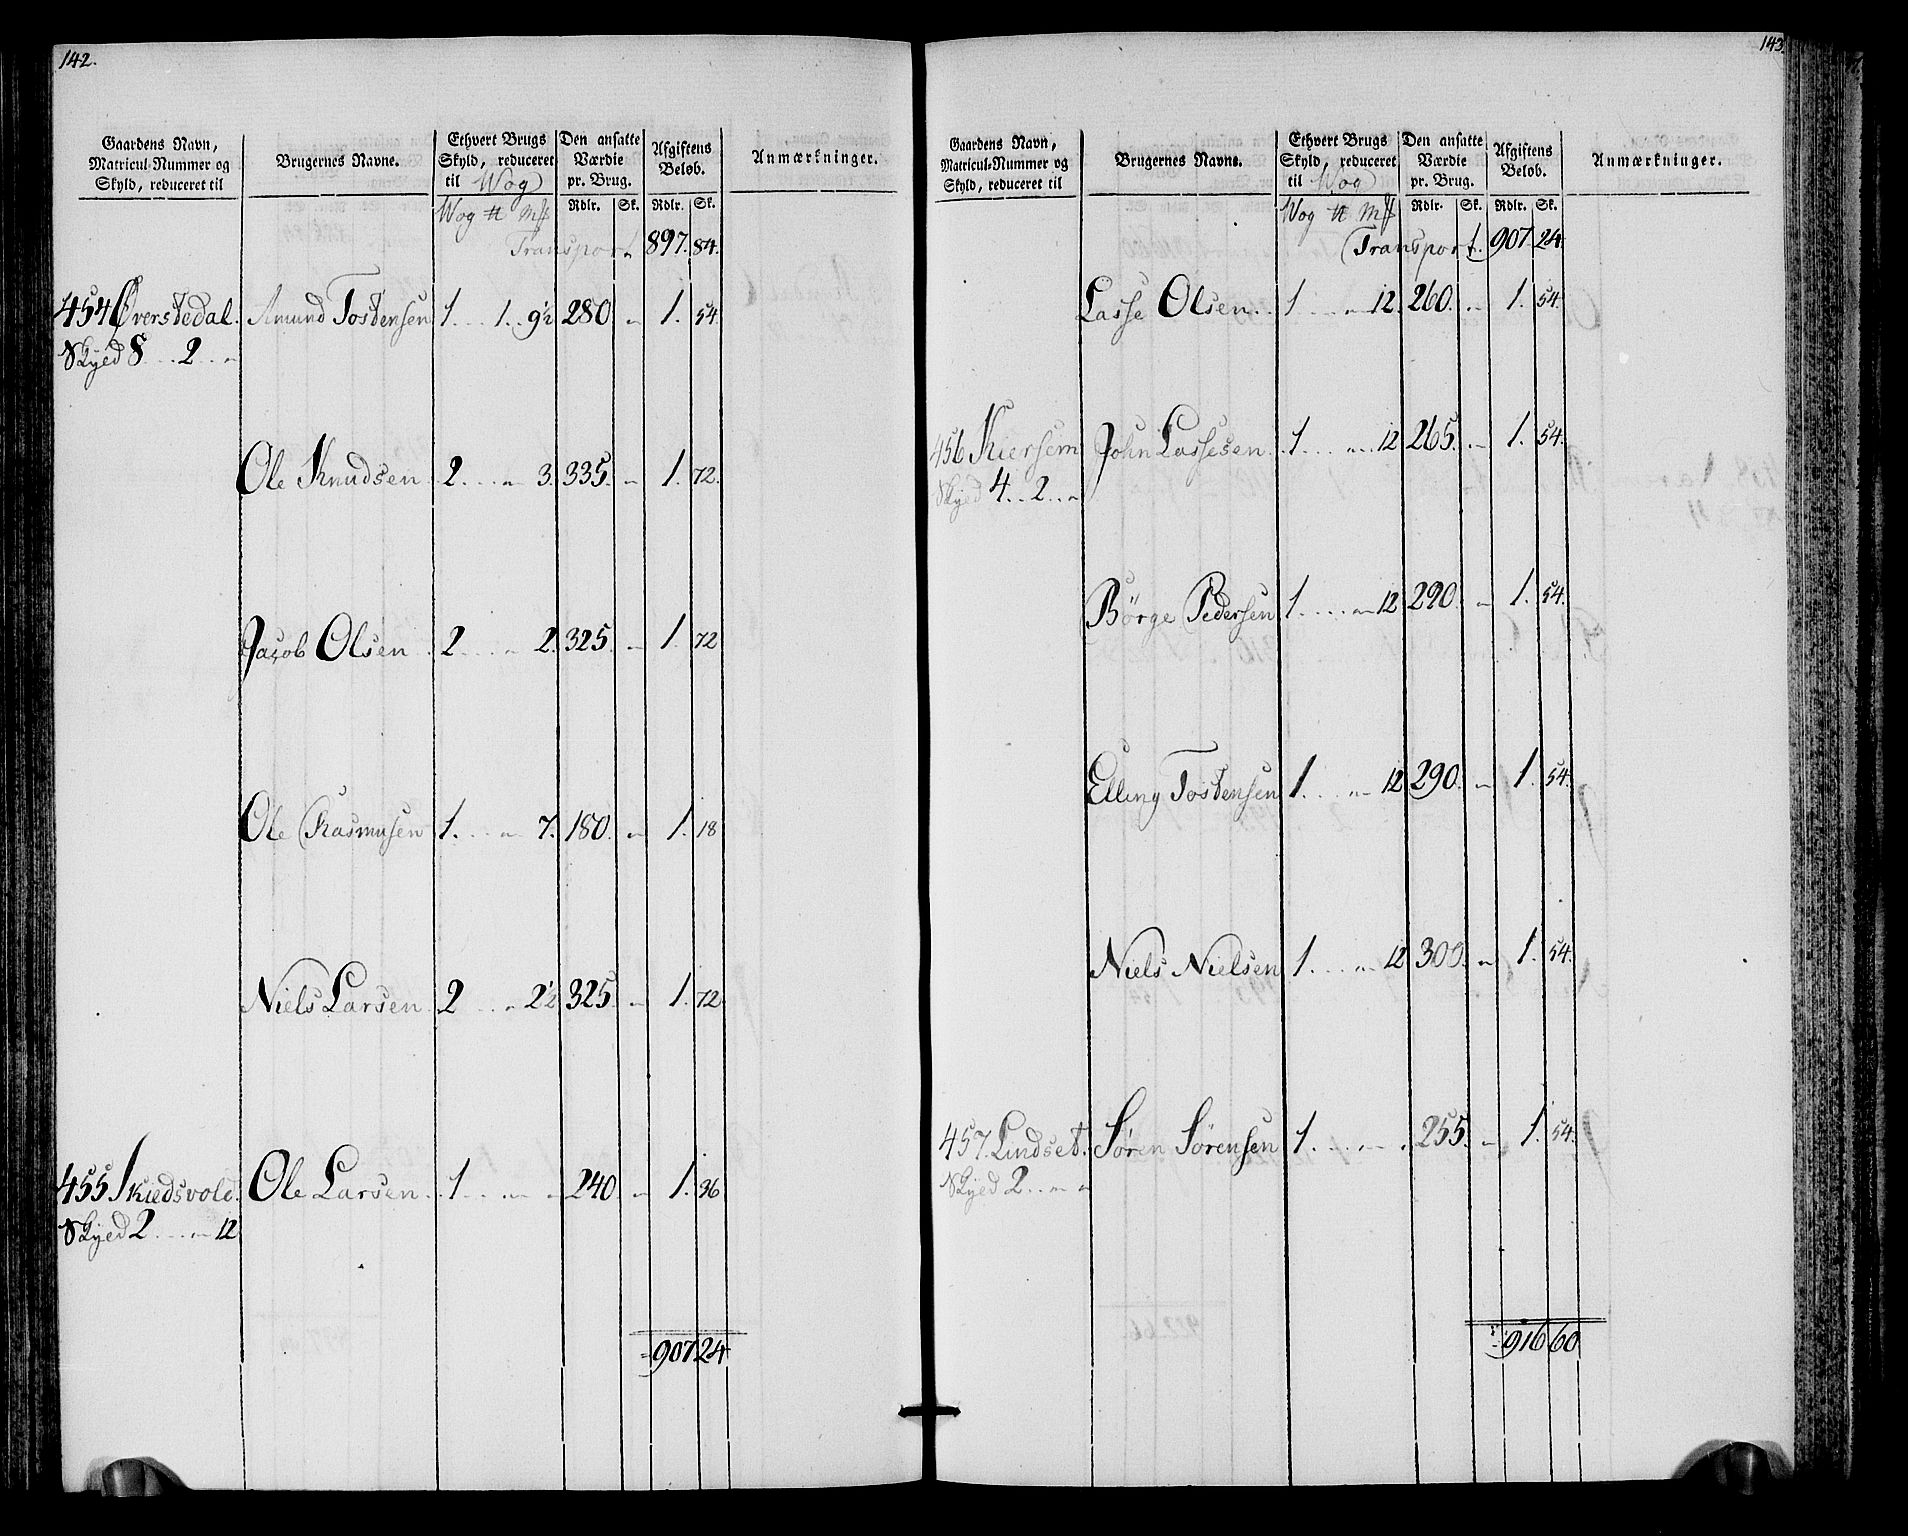 142.
Gaardens Navn, Matricul-Nummer og Skyld, reduceret til | Brugernes Navne. | Ethvert Brugs Skyld, reduceret til Wog | Den ansatte Værdie pr. Brug. | Afgiftens Beløb. | Anmærkninger.
Wog ℔ Mk | Rdlr. Sk. | Rdlr. Sk.
Transport. 897. 84.
454 Øverstedal. Amund Tostensen 1 .. 1 .. 9½ 280 „ 1. 54.
Skyed 8 .. 2 .. „
Ole Knudsen 2 ... „ 3. 335. „ 1. 72.
Jacob Olsen 2 ... „ 2. 325. „ 1. 72
Ole Rasmusen 1. ... „ 7. 180. „ 1. 18
Niels Larsen 2 ... „ 2½ 325. „ 1. 72
455 Skiedsvold. Ole Larsen 1 ... „ „ 240 „ 1. 36
Skyed 2 ... „ 12
907 24
143.
Gaardens Navn, Matricul-Nummer og Skyld, reduceret til | Brugernes Navne. | Ethvert Brugs Skyld, reduceret til Wog | Den ansatte Værdie pr. Brug. | Afgiftens Beløb. | Anmærkninger.
Wog ℔ Mk | Rdlr. Sk. | Rdlr. Sk.
Transport. 907. 24.
Lasse Olsen. 1 ... „ 12. 260. „ 1. 54.
456 Kiersem John Lassesen 1 ... „ 12 265. „ 1. 54.
Skyed 4 .. 2 .. „
Börge Pedersen 1 ... „ 12 290. „ 1. 54.
Elling Tostensen 1 ... „ 12 290. „ 1. 54.
Niels Nielsen 1 ... „ 12 300. „ 1. 54.
457. Lindset. Søren Sørensen 1 ... „ . 255. „ 1. 54.
Skyed 2 .. „ „
916 60